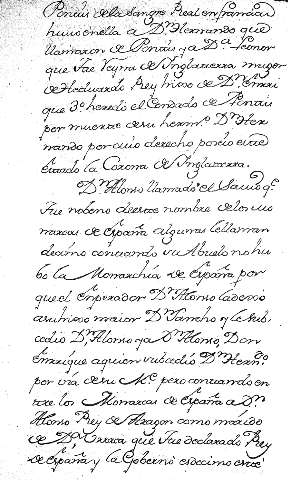 Pontis de la Sangre Real en Francia
huuo en ella a Dn. Hernando que
llamaron de Pontis y a Da. Leonor
que fue Reyna de Inglaterra muger
de Heduardo Rey hixo de Dn. Enrri
que 3o heredó el Condado de Pontis
por muerte de su hermo. Dn. Her
nando por cuio derecho por cio
la Corona de Inglaterra.
Dn. Alonso llamado el Savio qe.
fue nobeno de este nombre de los mo
narcas de España, algunos le llaman
decimo contando su Abuelo no hu
bo la Monarchia de España por
que el Emperador Dn. Alonso la dexo
a su hixo maior Dn. Sancho y le sub
cedio Dn. Alonso, y a Dn. Alonso, Don
Enrrique a quien subcedió Dn. Herndo.
por vía de su Me. pero contando en
tre los Monarcas de España a Dn.
Alonso Rey de Aragon como marido
de Da. Urraca que fue declarado Rey
de España y la Gobernó es decimo